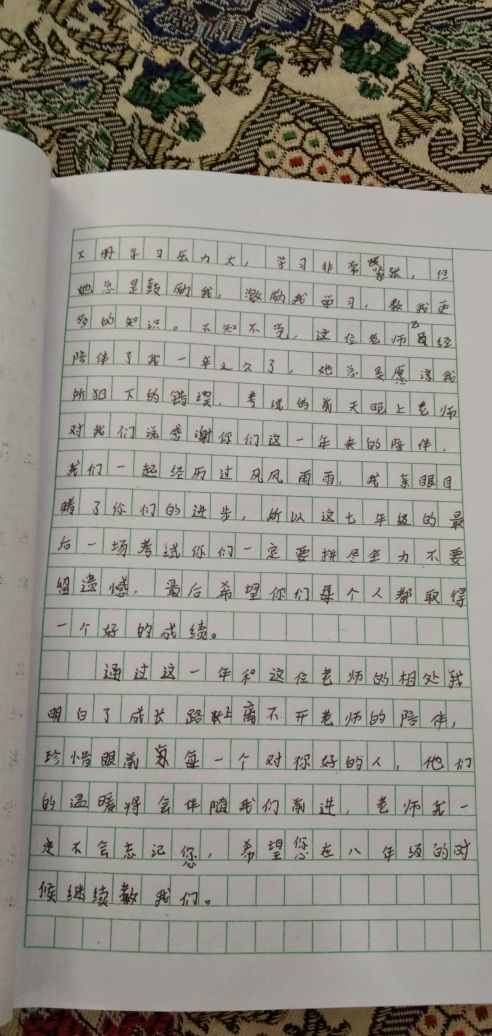 下册学习压力大，学习非常紧张，但
她总是鼓励我，激励我学习，教我更
多的知识。不知不觉，这位老师已经
陪伴了我一年之久了，她总是原谅我
所犯下的错误，考试的前天晚上老师
对我们说感谢你们这一年来的陪伴，
我们一起经历过风风雨雨，我亲眼目
睹了你们的进步，所以这七年级的最
后一场考试你们一定要拼尽全力不要
留遗憾，最后希望你们每个人都取得
一个好的成绩。
通过这一年和这位老师的相处我
明白了成长路上离不开老师的陪伴，
珍惜眼前每一个对你好的人，他们
的温暖将会伴随我们前进，老师我一
定不会忘记您，希望您在八年级的时
候继续教我们。